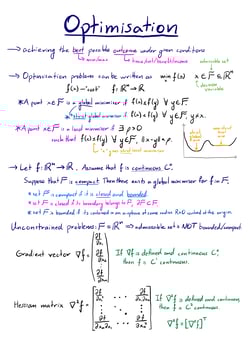 Optimisation
→ achieving the best possible outcome under given conditions
→ min/max → time/fuel/travel/finance
→ Optimisation problems can be written as min f(x) x ∈ F ⊆ ℝⁿ
admissible set
decision variable
f(x) → 'cost' f: ℝⁿ→ℝ
* A point x ∈ F is a global minimiser if f(x) ≤ f(y) ∀ y ∈ F.
* strict global minimiser if f(x) < f(y) ∀ y ∈ F, y ≠ x.
* A point x ∈ F is a local minimiser if ∃ ρ > 0
such that f(x) ≤ f(y) ∀ y ∈ F, ||x-y|| < ρ.
strict local minimiser
strict global
→ Let f: ℝⁿ→ℝ. Assume that f is continuous C⁰.
Suppose that F is compact. Then there exists a global minimiser for f in F.
* set F is compact if it is closed and bounded
* set F is closed if its boundary belongs to F, ∂F ∈ F.
* set F is bounded if it is contained in an n-sphere of some radius R>0 centred at the origin.
Unconstrained problems: F = ℝⁿ ⇒ admissible set is NOT bounded/compact
Gradient vector ∇f = [∂f/∂x₁ ∂f/∂x₂ ⋮ ∂f/∂xₙ] If ∇f is defined and continuous C⁰,
then f is C¹ continuous.
Hessian matrix ∇²f = If ∇²f is defined and continuous
then f is C² continuous.
∇²f = [∇²f]ᵀ